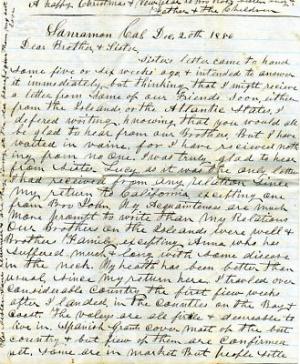 A happy Christmas & New year to my
Father & the Children
Sanramon Cal Dec 20th 18
Dear Brother & Sister,
Sisters letter came to hand
some five or six weeks ago & intended to answer
it immediately, but thinking that I might receive
a letter from some of our Friends Soon, either
from the Islands, or the Atlantic States, I
defered writing, knowing that you would all
be glad to hear from our Brother, But I have
waited in vain, for I have recieved noth
ing from no One. I was truly glad to hear
from Sister Lucy, as it was the only letter
I had recieved from any Relation Since
my return to California excepting one
from Bro John. My Acquaintance are much
More prompt to write than My Relations
Our Brother on the Islands were well &
Brothers Family, excepting Anna who has
Suffered much & long with some disease
in the neck. My health has been better than
usual, since my return here. I traveled over
considerable Country the first few weeks
after I landed, in the Counties on the Bay &
Coast. The Valeys are all fine & desireable to
live in. Spanish grants cover most of the best
country & but few of them are Confirmed
yet, Some are in market But people settle